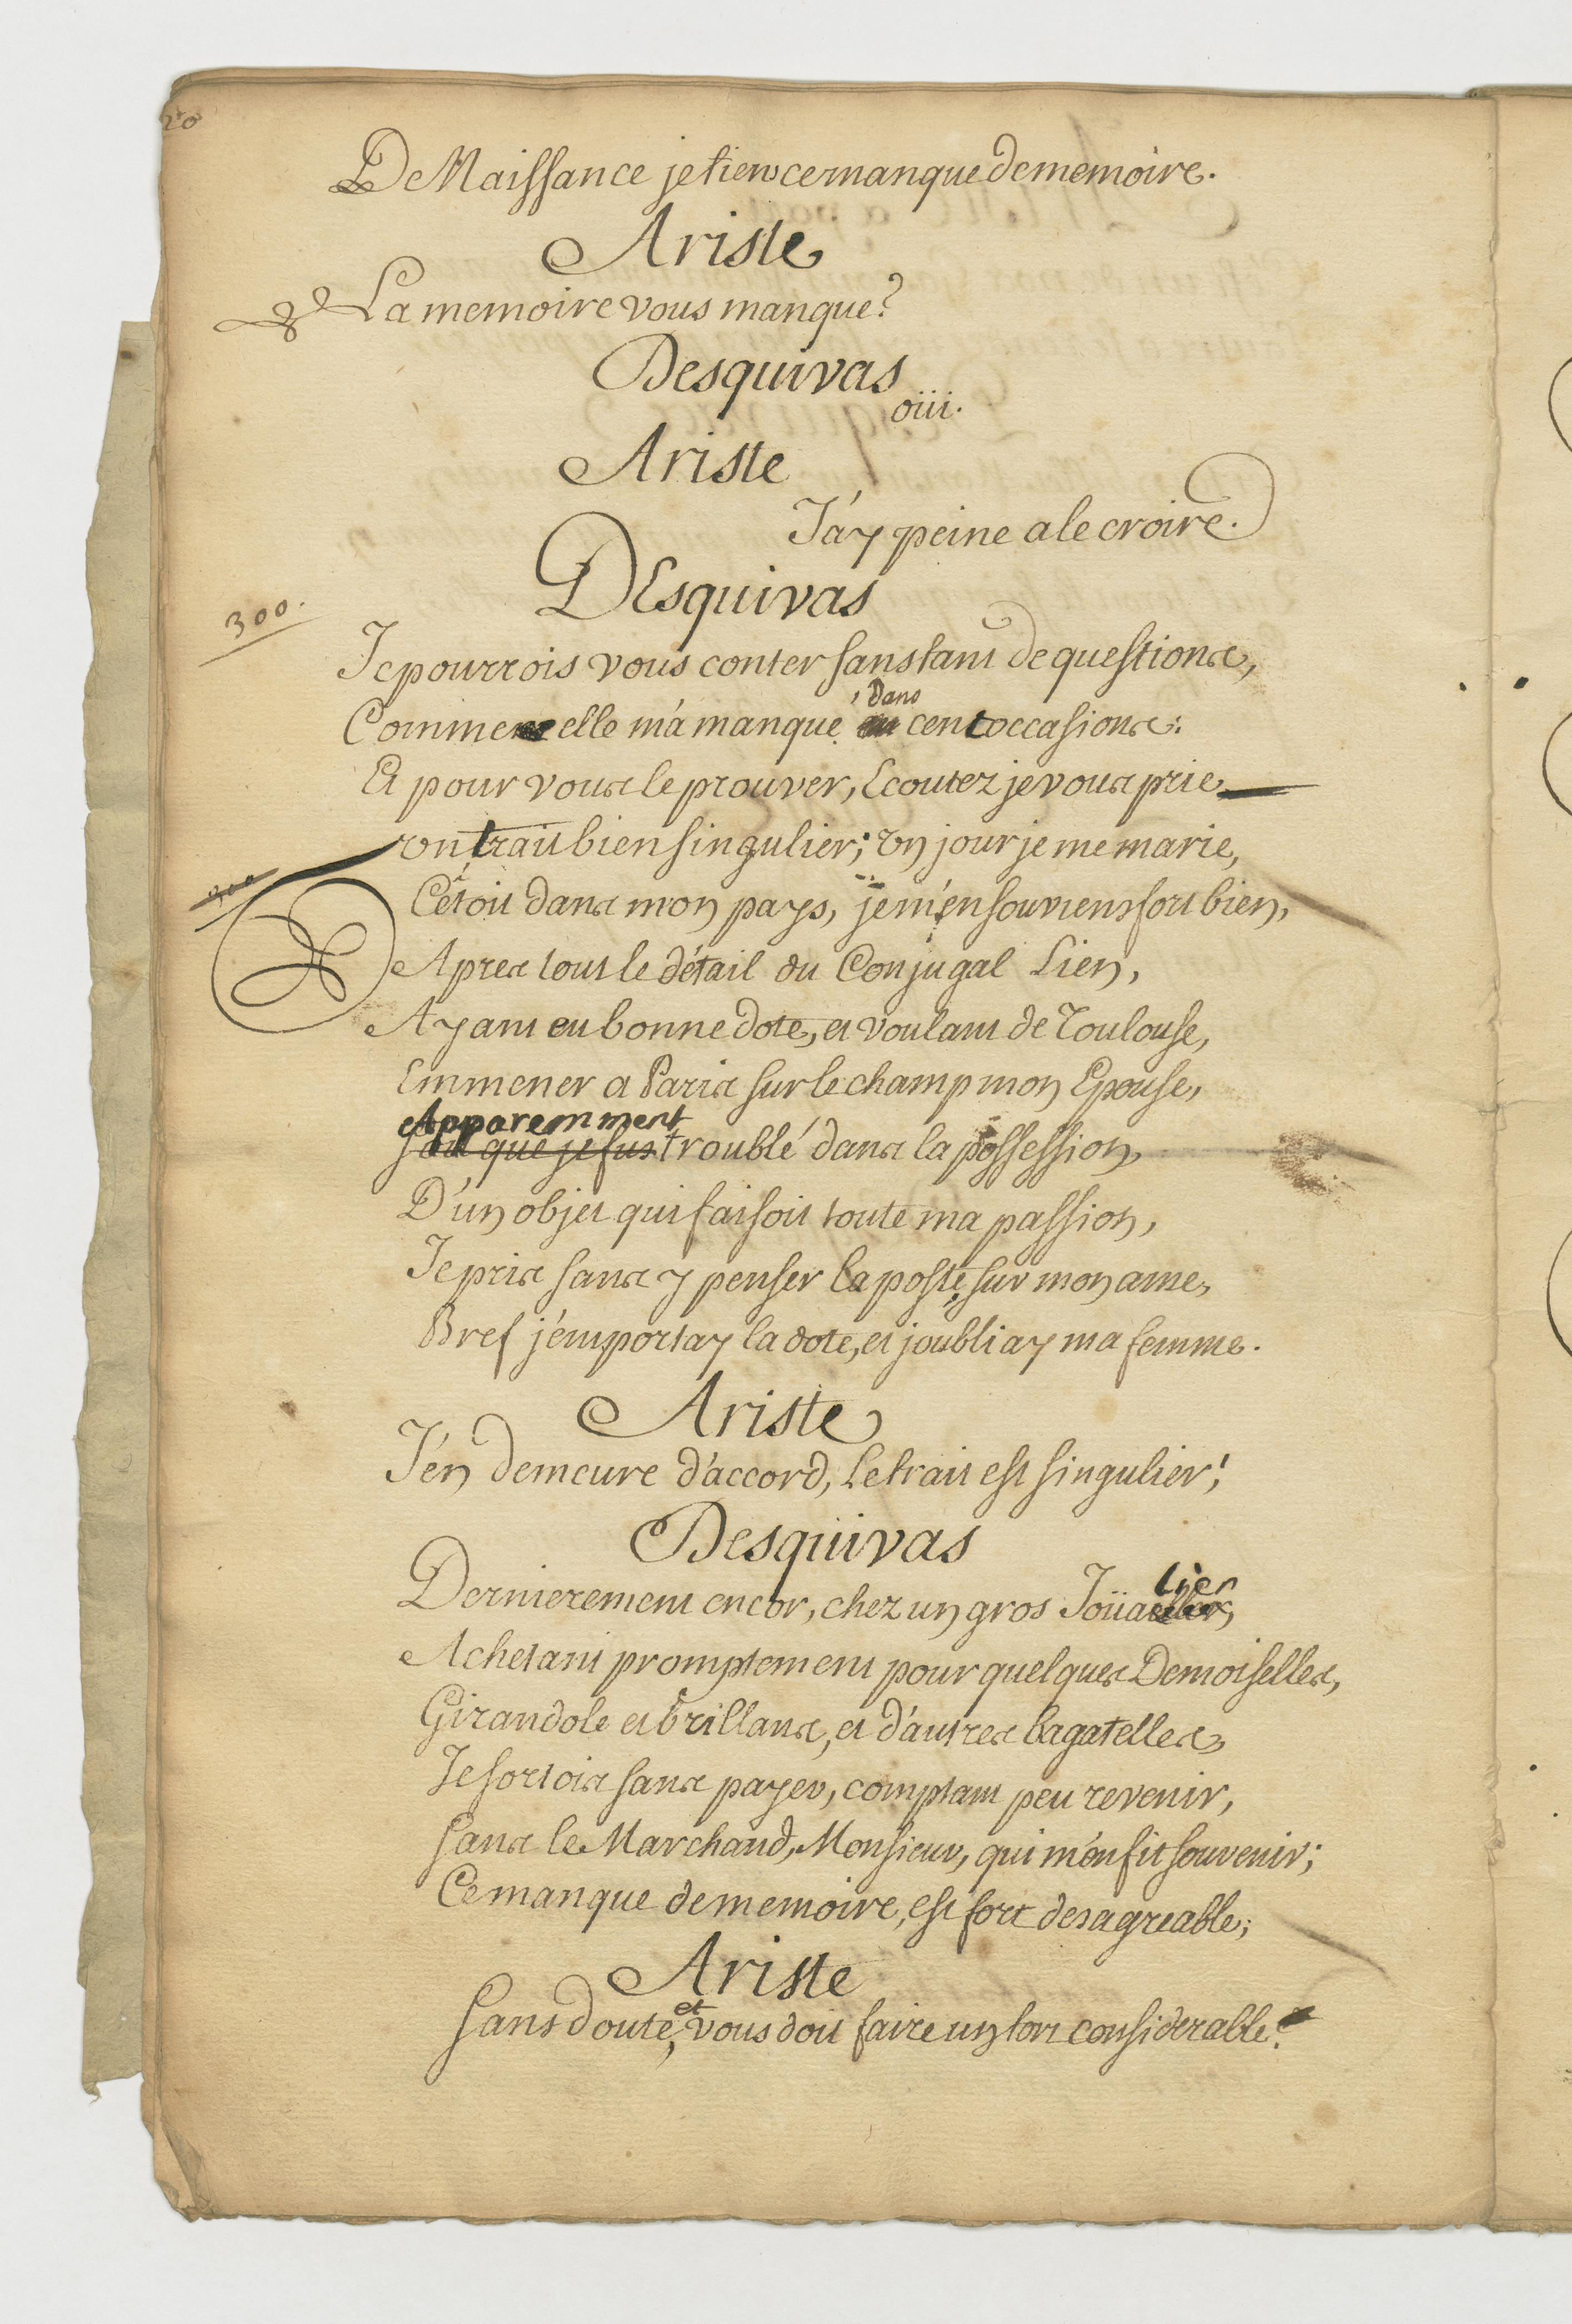 20
De Naissance je tiens ce manque de memoire.
Ariste
La memoire vous manque?
Desquivas
oüi.
Ariste
J'áy peine a le croire.
DEsquivas
300.
Je pourrois vous conter sans tant de questions,
Comme elle m'a manqué, Dans cent occasions:
Et pour vous le prouver, Ecoutez je vous prie
vn trait bien singulier; vn jour je me marie,
C'étoit dans mon pays, je m'en souviens fort bien,
Apres tout le détail du Conjugal Lien,
Ayant eu bonne dote, et voulant de Toulouse,
Emmener a Paris sur le champ mon Epouse,
Apparemment
soit que je fus troublé dans la possession,
D'un objet qui faisoit toute ma passion,
Je pris sans y penser la poste, sur mon ame,
Bref j'emportay la dote, et joubliay ma femme.
Ariste
J'en demeure d'accord, Le trait est singulier!
Desquivas
Dernierement encor, chez un gros Joüaillier,
Achetant promptement pour quelques Demoiselles,
Girandole et brillans, et d'autres bagatelles,
Je sortois sans payer, comptant peu revenir,
Sans le Marchand, Monsieur, qui m'en fit souvenir;
Ce manque de memoire, est fort desagreable;
Ariste
Sans doute, et vous doit faire un tort considerable?